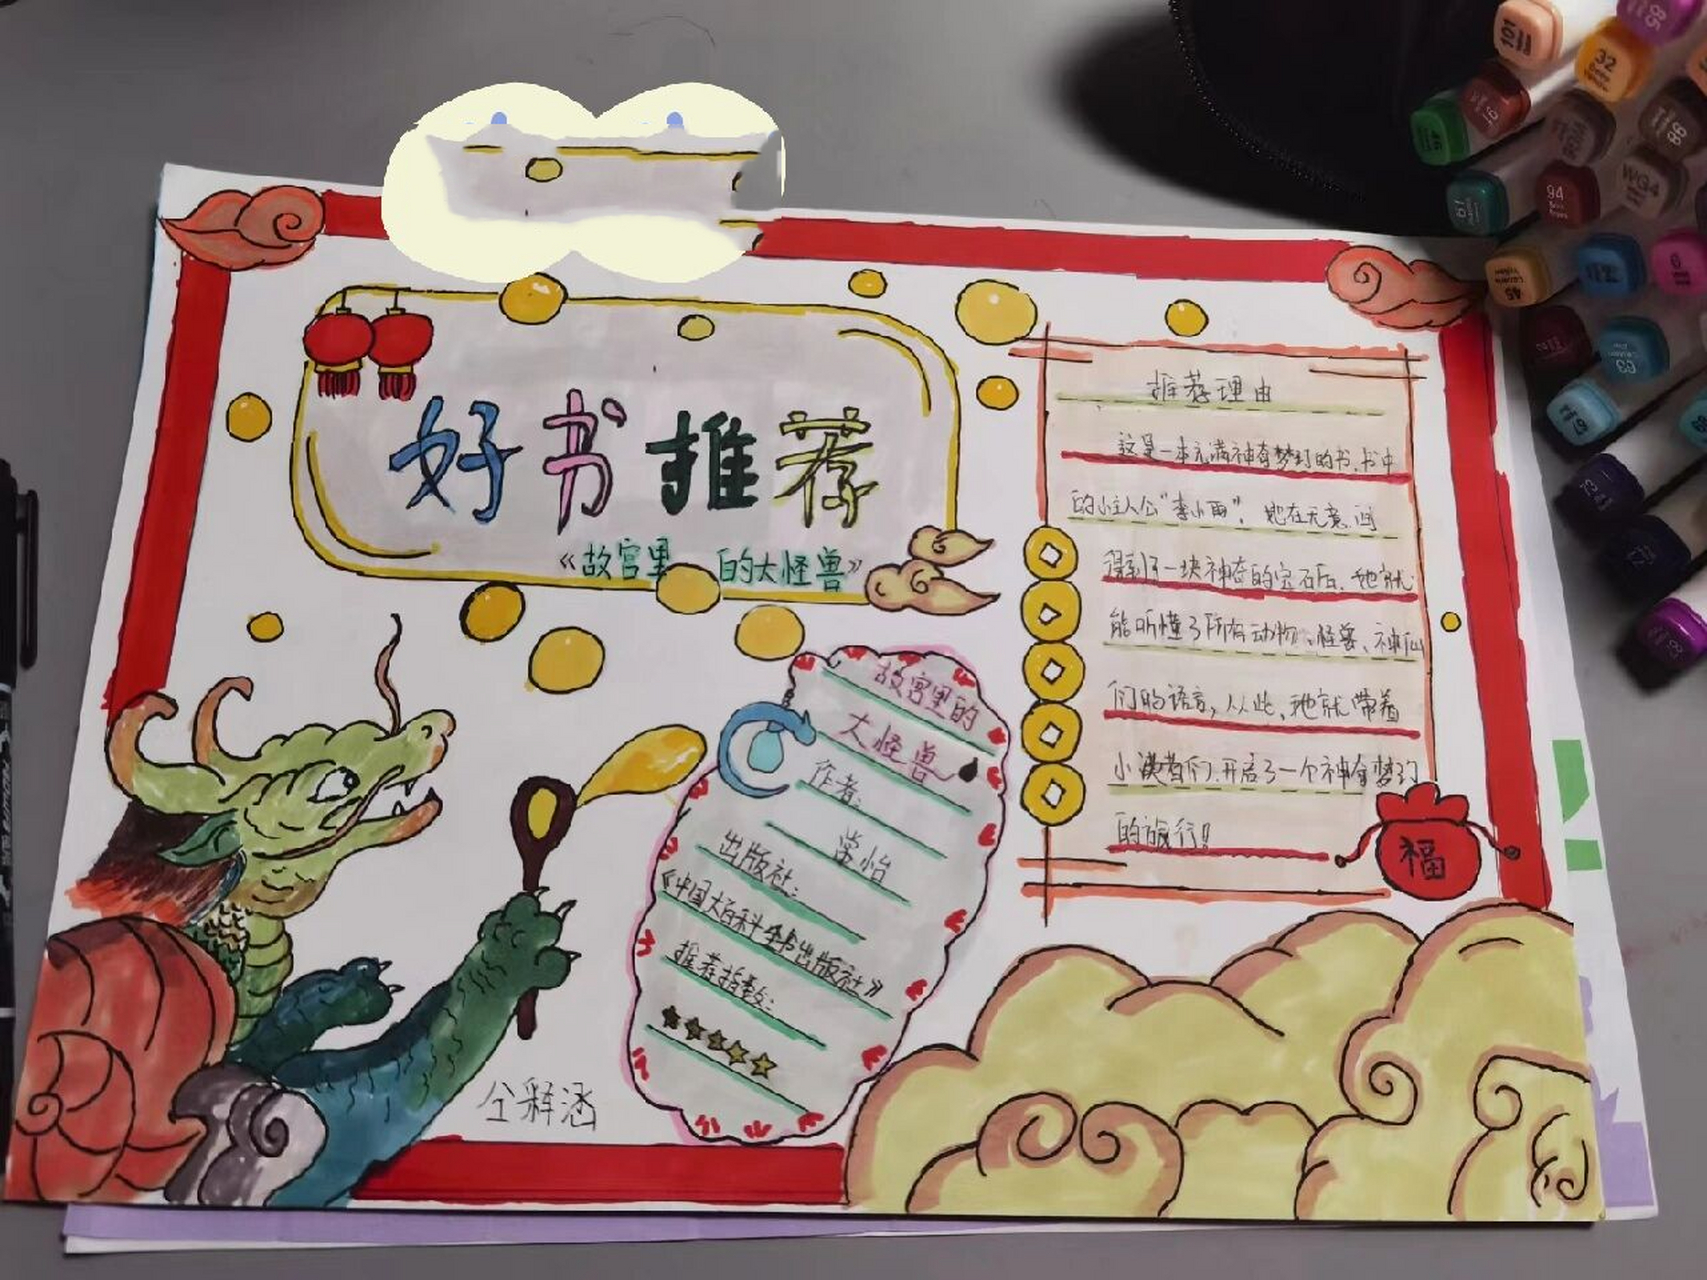 好书推荐
《故宫里的大怪兽》
推荐理由
这是一本充满神奇梦幻的书,书中
的小主人公"李小雨",她在无意间
得到了一块神奇的宝石后,她就
能听懂了所有动物、怪兽、神仙
们的语言,从此,她就带着
小读者们,开启了一个神奇梦幻
的旅行!
福
故宫里的
大怪兽
作者:
常怡
出版社:
《中国大百科全书出版社》
推荐指数:
★★★★★
仝释涵
101
32
94
WG4
61
45
9
63
67
73